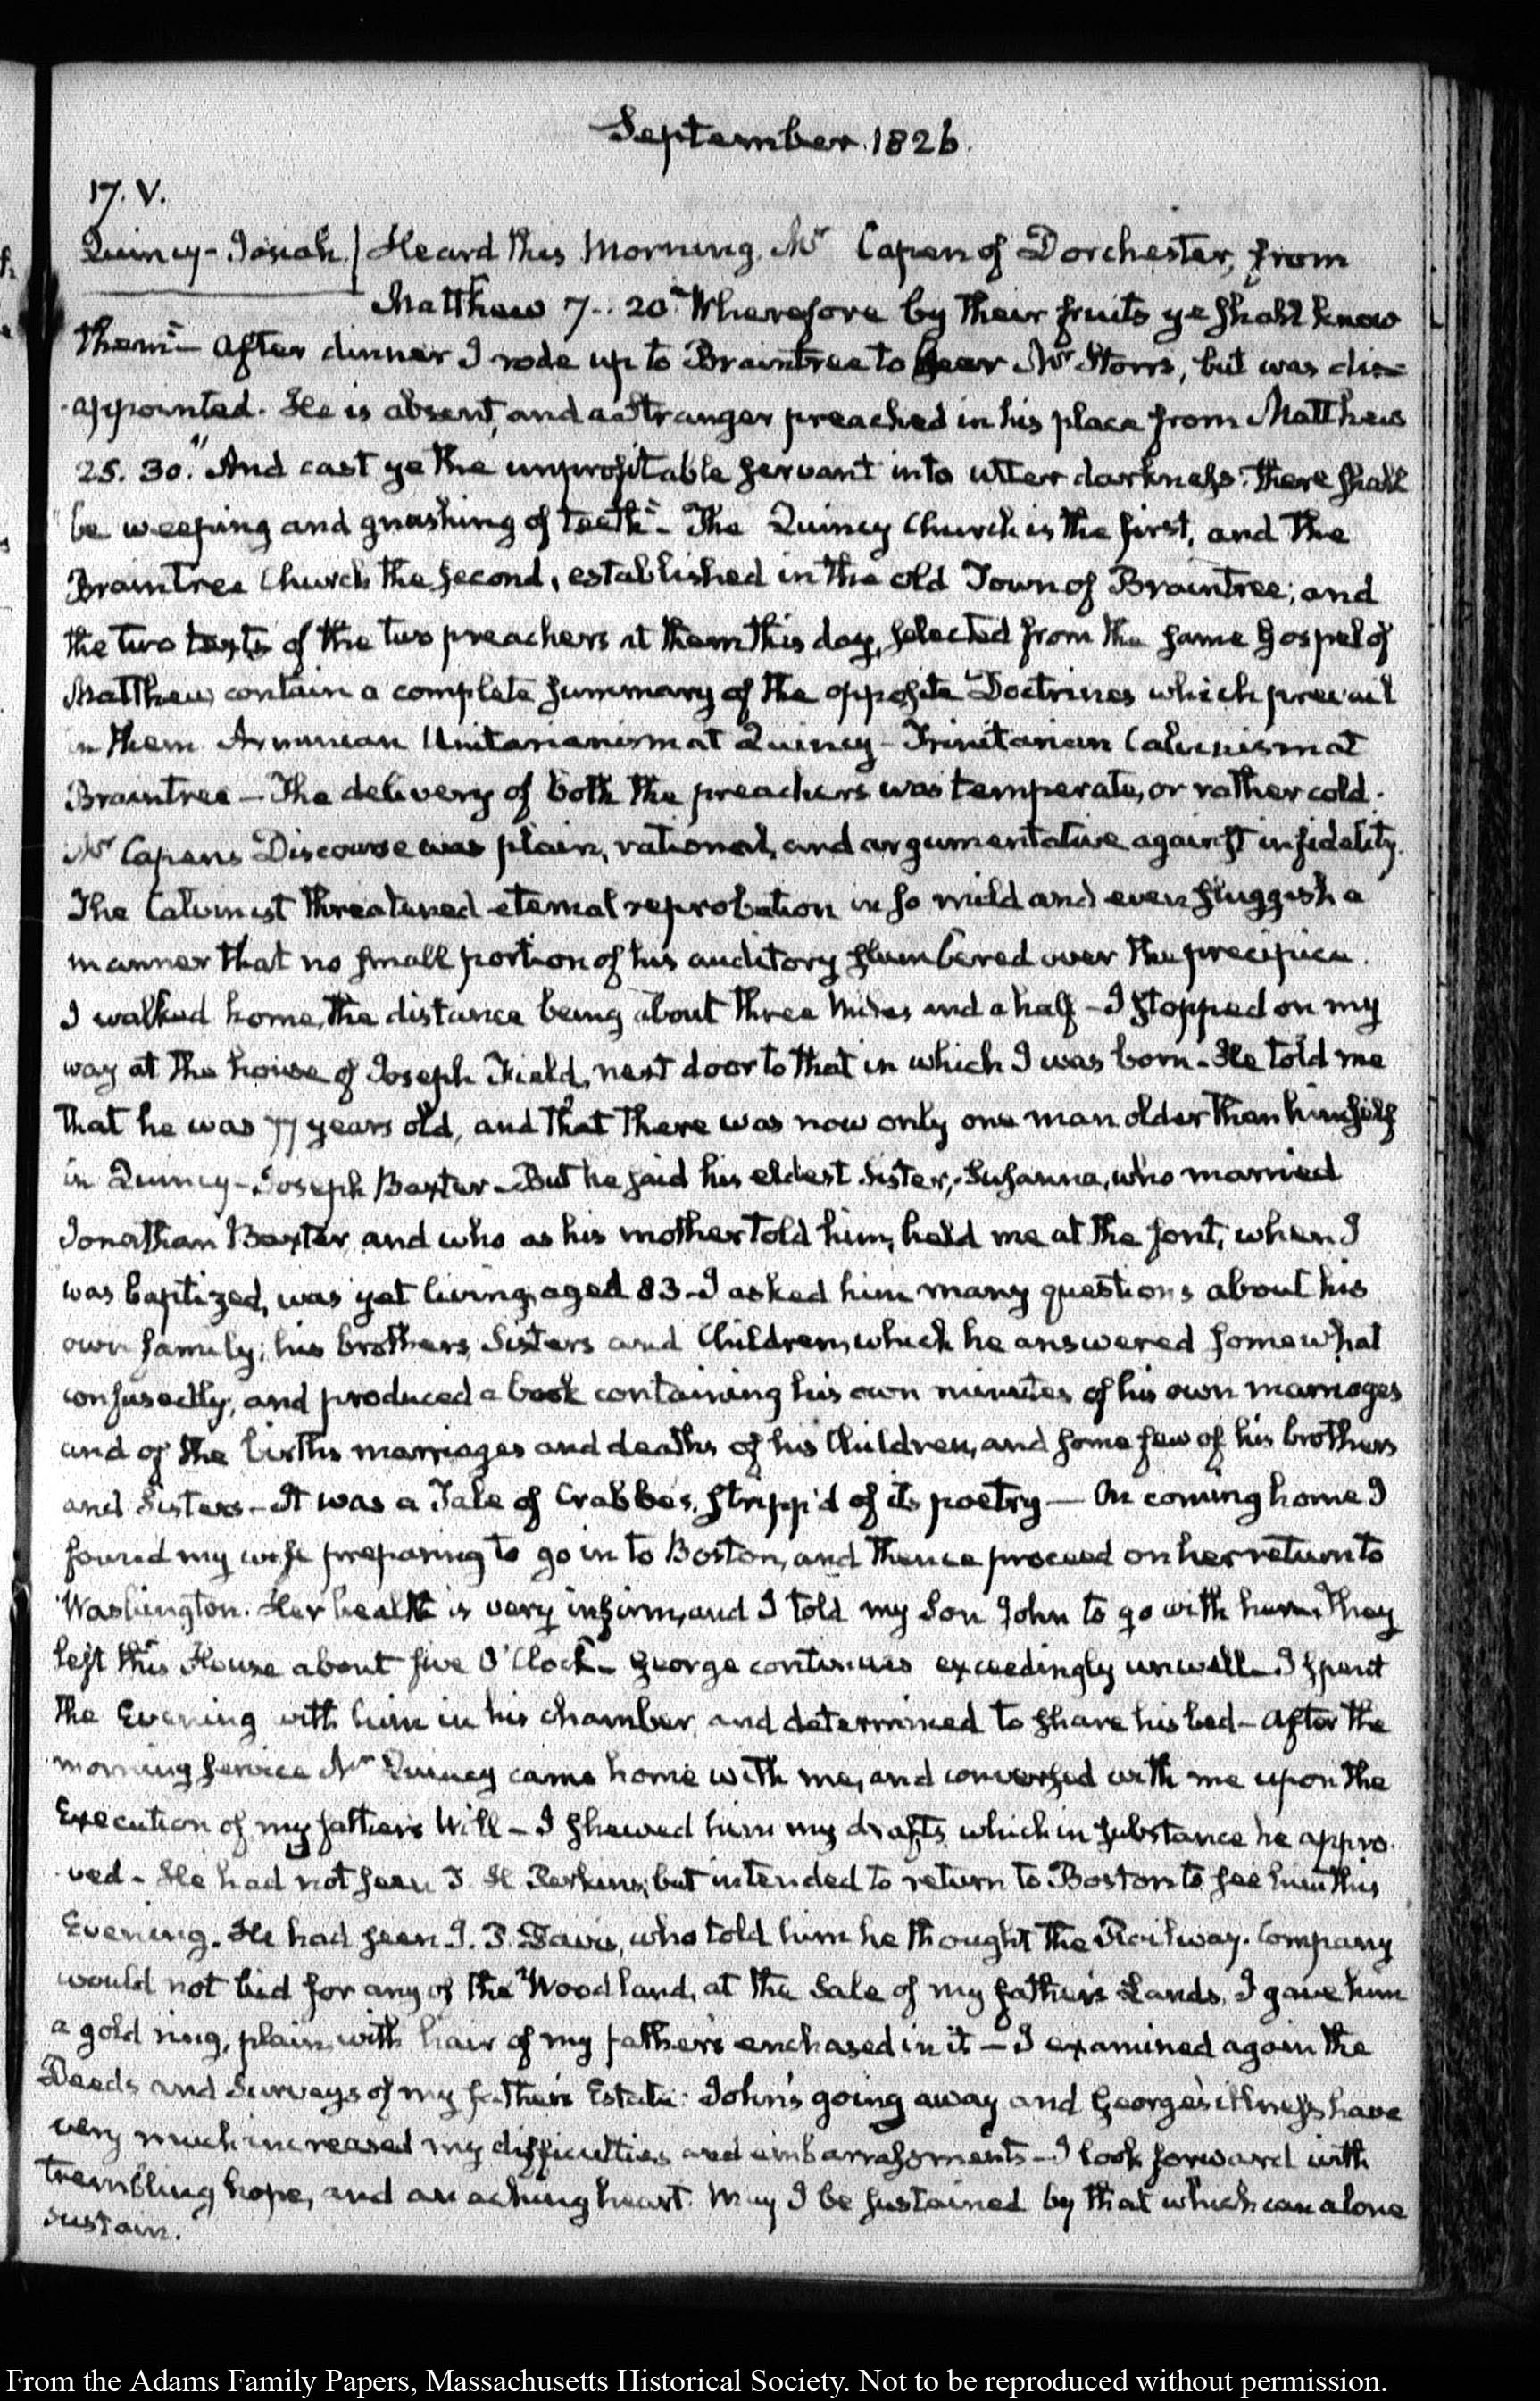 September. 1826.
17. V.
Quincy - Josiah. | Heard this Morning Mr Capen of Dorchester, from
Matthew 7. 20. "Wherefore by their fruits ye shall know
them" - After dinner I rode up to Braintree to hear Mr Storrs, but was dis-
appointed. He is absent, and a stranger preached in his place from Matthew
25. 30. "And cast ye the unprofitable servant into utter darkness: there shall
be weeping and gnashing of teeth" - The Quincy Church is the first, and the
Braintree Church the second, established in the old Town of Braintree; and
the two texts of the two preachers at them this day, selected from the same Gospel of
Matthew contain a complete summary of the opposite Doctrines which prevail
in them Arminian Unitarianism at Quincy - Trinitarian Calvinism at
Braintree - The delivery of both the preachers was temperate, or rather cold.
Mr Capens Discourse was plain, rational, and argumentative against infidelity.
The Calvinist threatened eternal reprobation in so mild and even sluggish a
manner that no small portion of his auditory slumbered over the precipice.
I walked home, the distance being about three miles and a half - I stopped on my
way at the house of Joseph Field, next door to that in which I was born - He told me
that he was 77 years old, and that there was now only one man older than himself
in Quincy - Joseph Baxter - But he said his eldest Sister, Susanna, who married
Jonathan Baxter, and who as his mother told him, held me at the font, when I
was baptized, was yet living, aged 83 - I asked him many questions about his
own family; his brothers, Sisters and Children, which he answered somewhat
confusedly, and produced a book containing his own minutes of his own marriages
and of the births marriages and deaths of his Children, and some few of his brothers
and Sisters - It was a Tale of Crabbes, stripp'd of its poetry — On coming home I
found my wife preparing to go in to Boston, and thence proceed on her return to
Washington. Her health is very infirm, and I told my Son John to go with her. They
left this House about five O'Clock - George continues exceedingly unwell - I spent
the Evening with him in his chamber, and determined to share his bed - After the
morning service Mr Quincy came home with me, and conversed with me upon the
Execution of my father's Will - I shewed him my drafts, which in substance he appro-
ved - He had not seen T. H. Perkins; but intended to return to Boston to see him this
Evening. He had seen I. P. Davis, who told him he thought the Railway Company
would not bid for any of the Woodland, at the Sale of my father's Lands. I gave him
a gold ring, plain, with hair of my father's enchased in it - I examined again the
Deeds and Surveys of my father's Estate. John's going away and George's illness have
very much increased my difficulties and embarrassments - I look forward with
trembling hope, and an aching heart. May I be sustained by that which can alone
sustain.
From the Adams Family Papers, Massachusetts Historical Society. Not to be reproduced without permission.